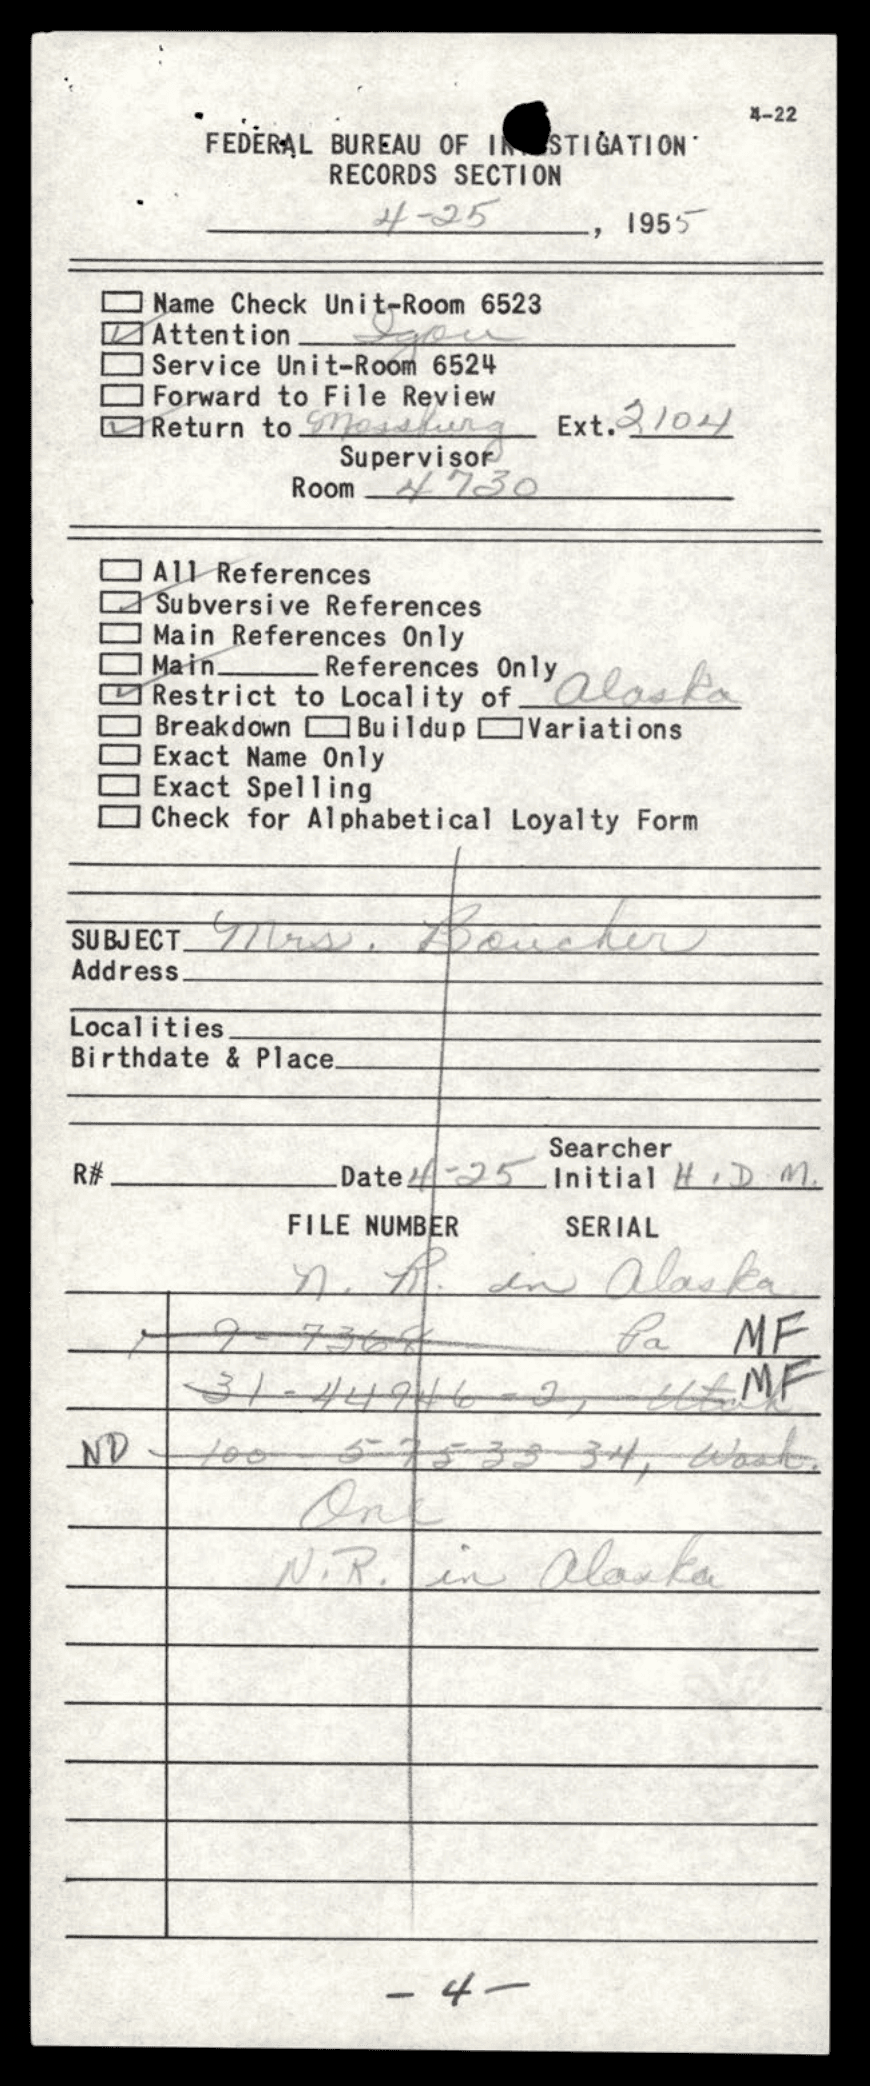 4-22
FEDERAL BUREAU OF INVESTIGATION
RECORDS SECTION
4-25, 1955
Name Check Unit-Room 6523
Attention Igou
Service Unit-Room 6524
Forward to File Review
Return to Mossburg Ext. 2104
Supervisor
Room 4730
All References
Subversive References
Main References Only
Main______ References Only
Restrict to Locality of Alaska
Breakdown Buildup Variations
Exact Name Only
Exact Spelling
Check for Alphabetical Loyalty Form
SUBJECT Mrs. Boucher
Address
Localities
Birthdate & Place
Searcher
R# Date 4-25 Initial H.D.M.
FILE NUMBER SERIAL
N.R. in Alaska
9-7368 Pa MF
31-44946-2, Utah MF
ND 100 57533 34, Wash.
One
N.R. in Alaska
- 4 -